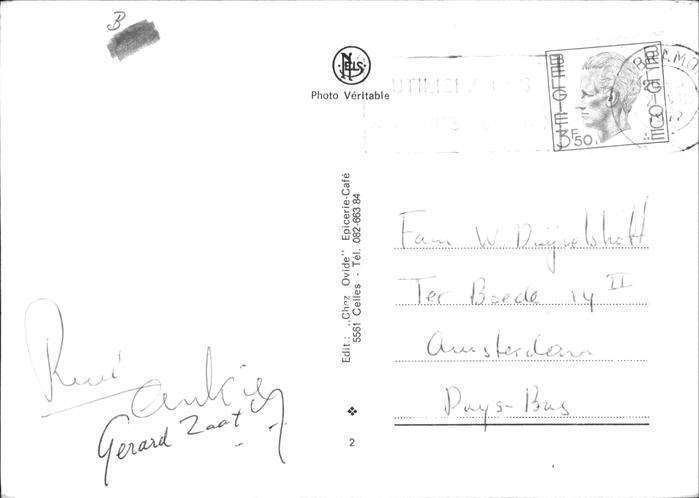 B
NELS
Photo Véritable
BELGIE-BELGIQUE
3F50
Edit.: „Chez Ovide" Epicerie-Café
5561 Celles - Tél. 082-663 84
Fam W.
Ter Boede 14 II
Amsterdam
Pays-Bas
René
Ankie
Gerard Zaat
2